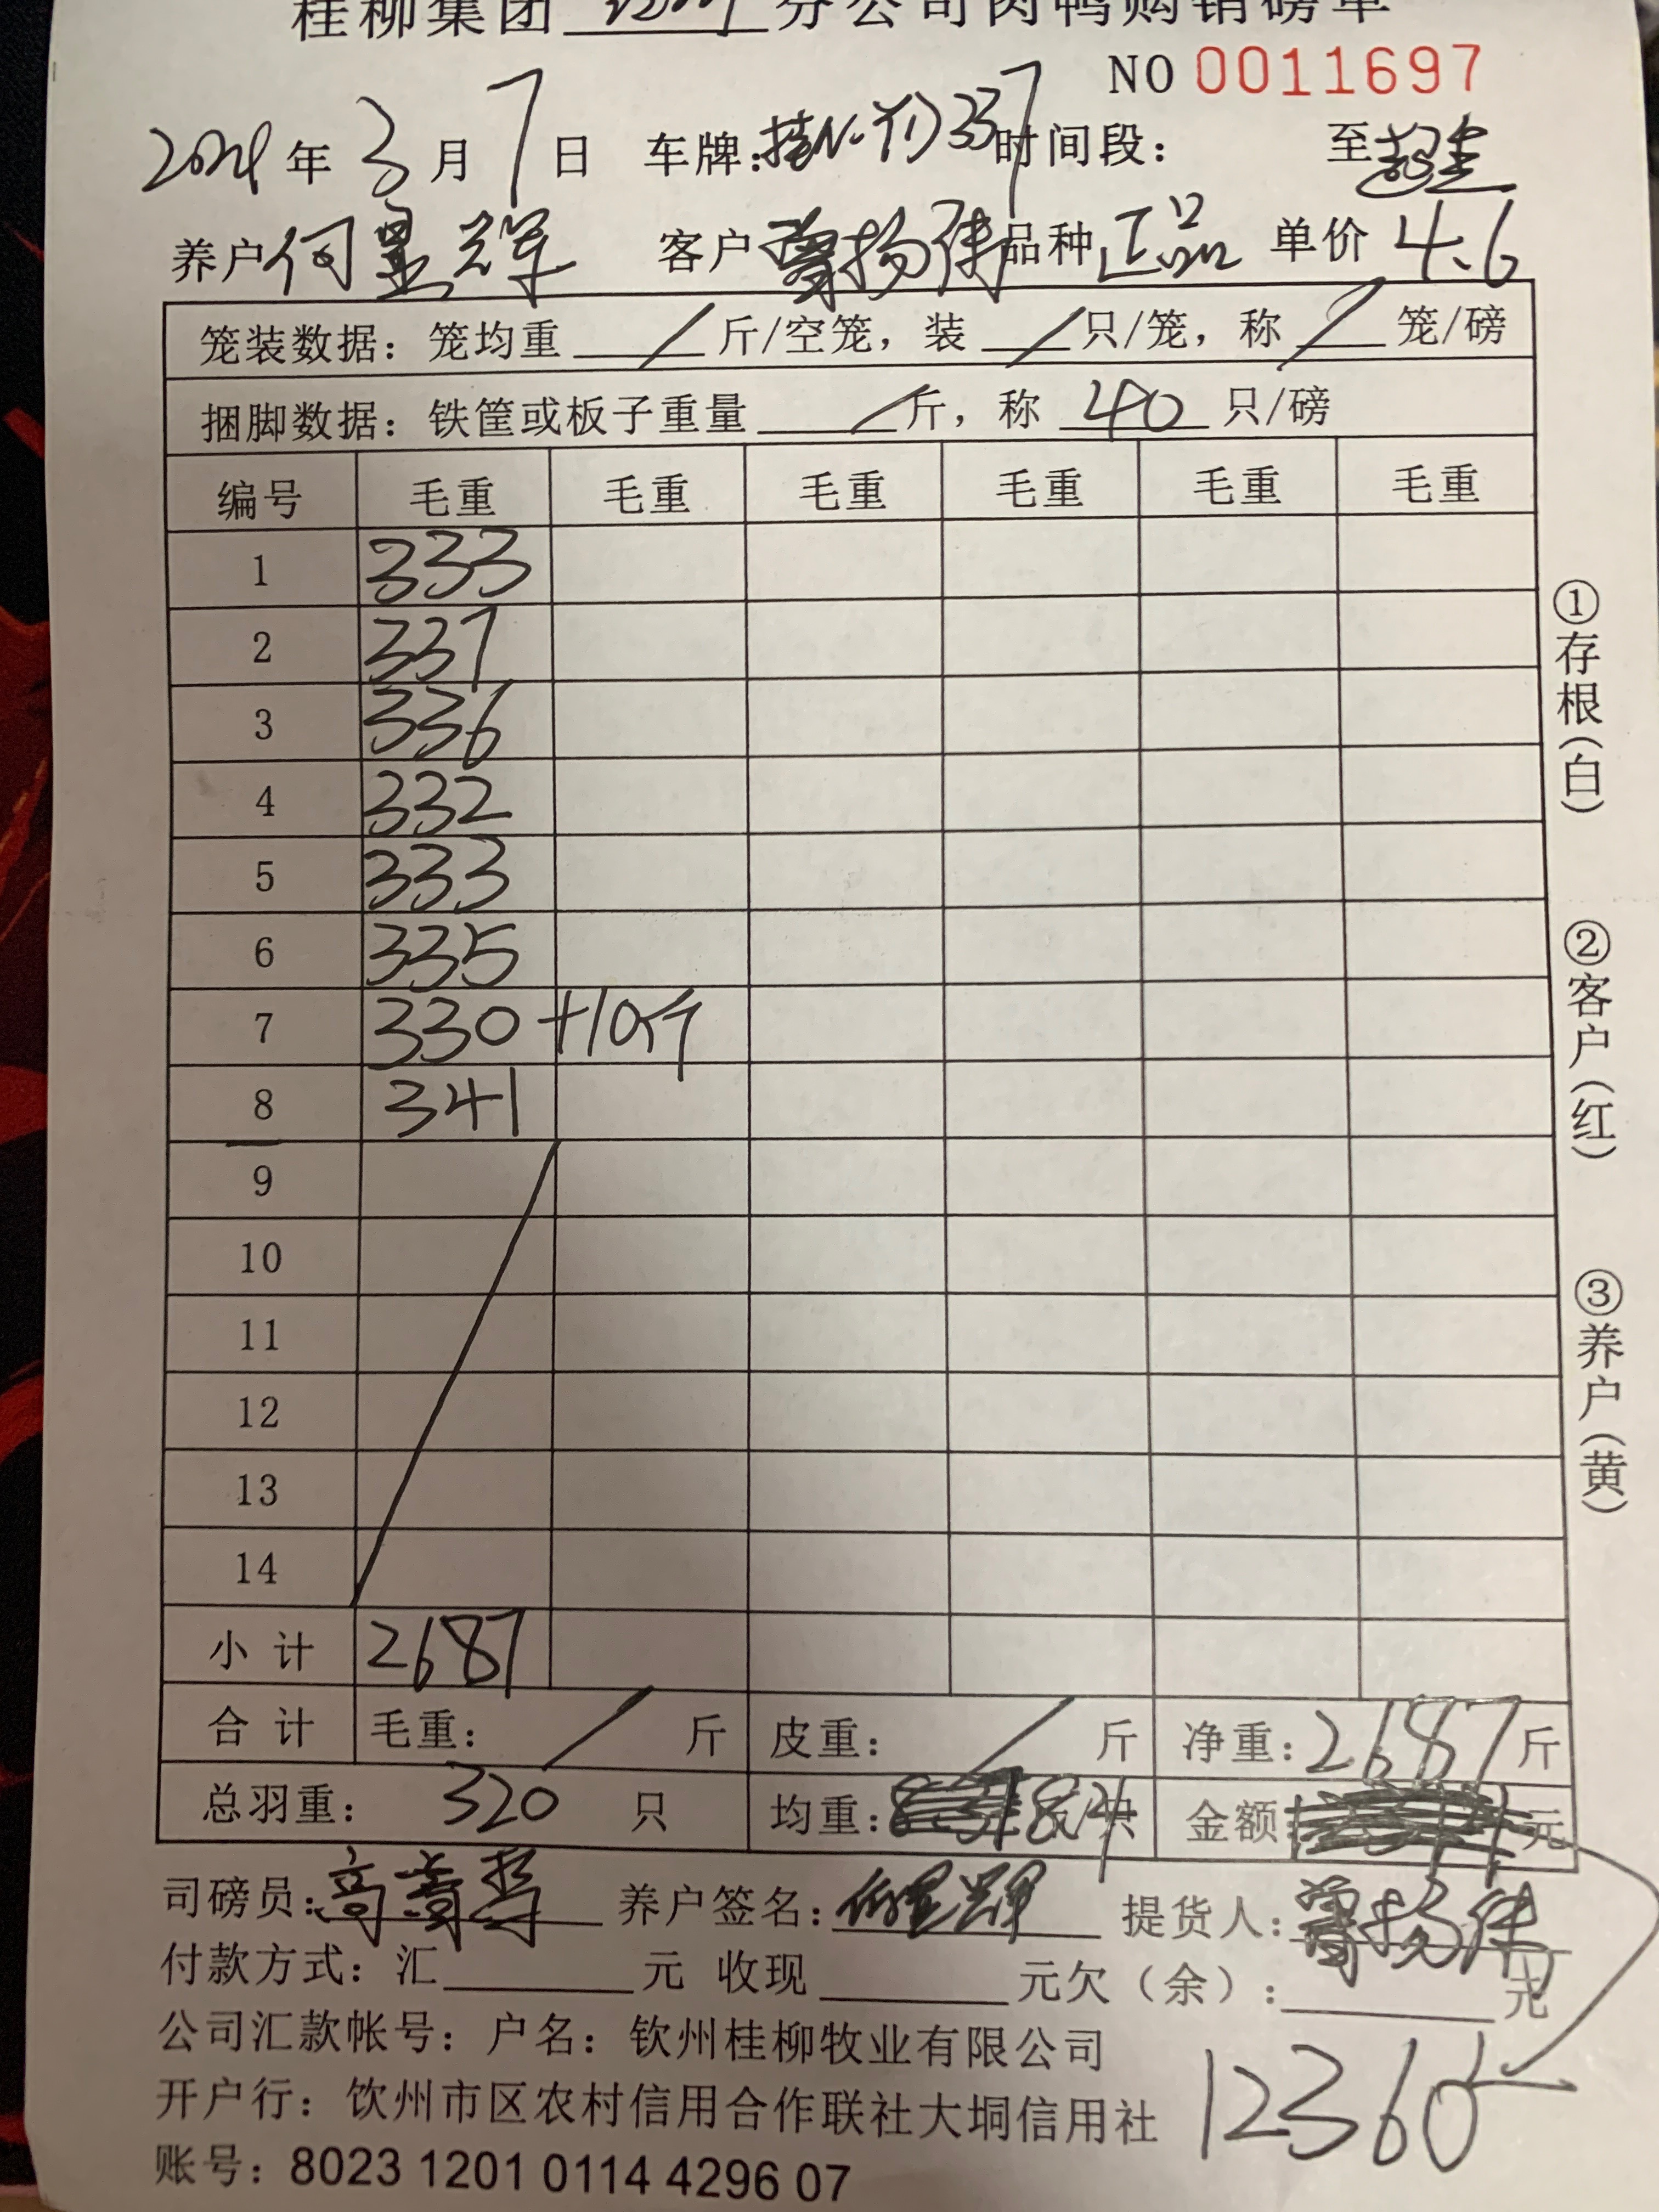 桂柳集团 分公司肉鸭购销磅单
NO 0011697
年 3 月 7 日 车牌: 337 时间段: 至
养户 何显辉 客户 曾扬伟 品种 正品 单价 4.6
笼装数据: 笼均重 / 斤/空笼, 装 / 只/笼, 称 / 笼/磅
捆脚数据: 铁筐或板子重量 / 斤, 称 40 只/磅
编号 毛重 毛重 毛重 毛重 毛重 毛重
1 333
2 337
3 336
4 332
5 333
6 335
7 330 +10斤
8 341
9
10
11
12
13
14
小计 2687
合计 毛重: / 斤 皮重: / 斤 净重: 2687 斤
总羽重: 320 只 均重: 8.4 斤/只 金额 元
司磅员: 养户签名: 何显辉 提货人: 曾扬伟
付款方式: 汇 元 收现 元欠(余): 元
公司汇款帐号: 户名: 钦州桂柳牧业有限公司
开户行: 钦州市区农村信用合作联社大垌信用社
12360
账号: 8023 1201 0114 4296 07
①存根(白)
②客户(红)
③养户(黄)